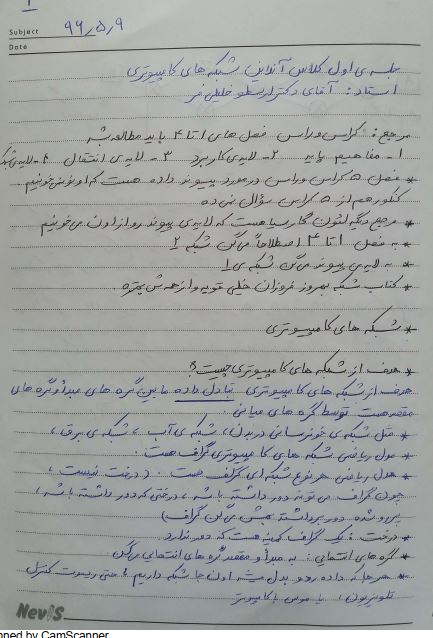 1
Subject
Date
۹۶٫۵٫۹
جلسه ی اول کلاس آنلاین شبکه های کامپیوتری
استاد: آقای دکتر ارسطو خلیلی فر
مرجع: کراس وراس فصل های ۱ تا ۴ باید مطالعه بشه
۱- مفاهیم پایه ۲- لایه ی کاربرد ۳- لایه ی انتقال ۴- لایه ی شبکه
* فصل ۵ کراس وراس در مورد پیوند داده هست که اونو نمی خونیم.
کنکور هم از ۵ کراس سؤال نمی ده
* مرجع دیگه لئون گارسیا هست که لایه ی پیوند رو از اون می خونیم
* به فصل ۱ تا ۴ اصطلاحاً می گن شبکه ۲
* به لایه ی پیوند می گن شبکه ی ۱
* کتاب شبکه بهروز فروزان خیلی قویه و از همه ش بهتره.
* شبکه های کامپیوتری
* هدف از شبکه های کامپیوتری چیست؟
هدف از شبکه های کامپیوتری تبادل داده ما بین گره های مبدأ و گره های
مقصد هست توسط گره های میانی.
* مثل شبکه ی خونرسانی در بدن، شبکه ی آب، شبکه ی برق،
* مدل ریاضی شبکه های کامپیوتری گراف هست.
* مدل ریاضی هر نوع شبکه ای گراف هست. (درخت نیست،
چون گراف می تونه دور داشته باشه، درختی که دور داشته باشه،
دور داشته بهش می گن گراف)
* درخت: یک گراف هست که دور ندارد.
* گره های انتهایی: به مبدأ و مقصد گره های انتهایی می گن.
* هر جا که داده رد و بدل بشه اون جا شبکه داریم، حتی ریموت کنترل
تلویزیون، یا موس با کامپیوتر
Nevis
nned by CamScanner